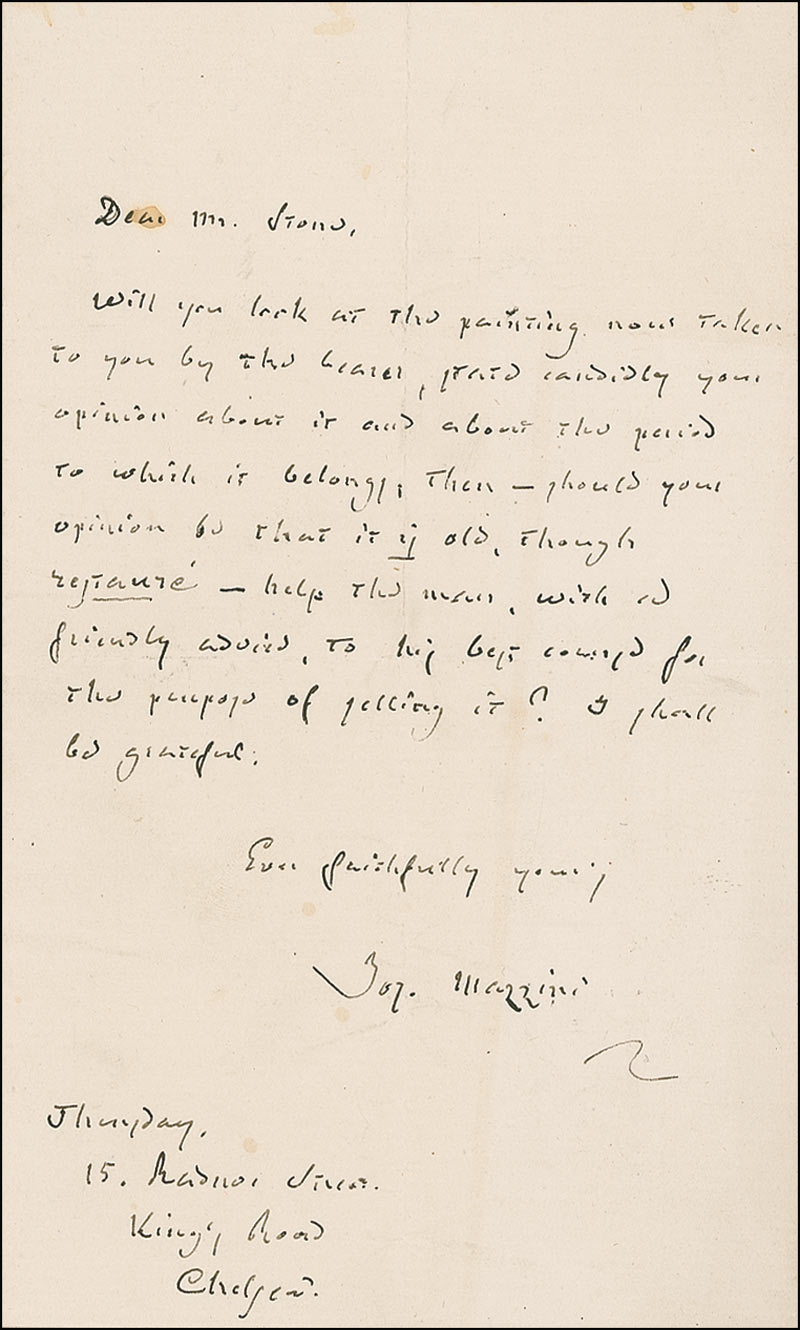 Dear Mr. Stone,
Will you look at the painting now taken
to you by the bearer, state candidly your
opinion about it and about the period
to which it belongs; then — should your
opinion be that it is old, though
restauré — help the man, with a
friendly advice, to his best course for
the purpose of selling it? I shall
be grateful.
Ever faithfully yours
Jos. Mazzini
Thursday.
15. Radnor Street.
King's Road
Chelsea.